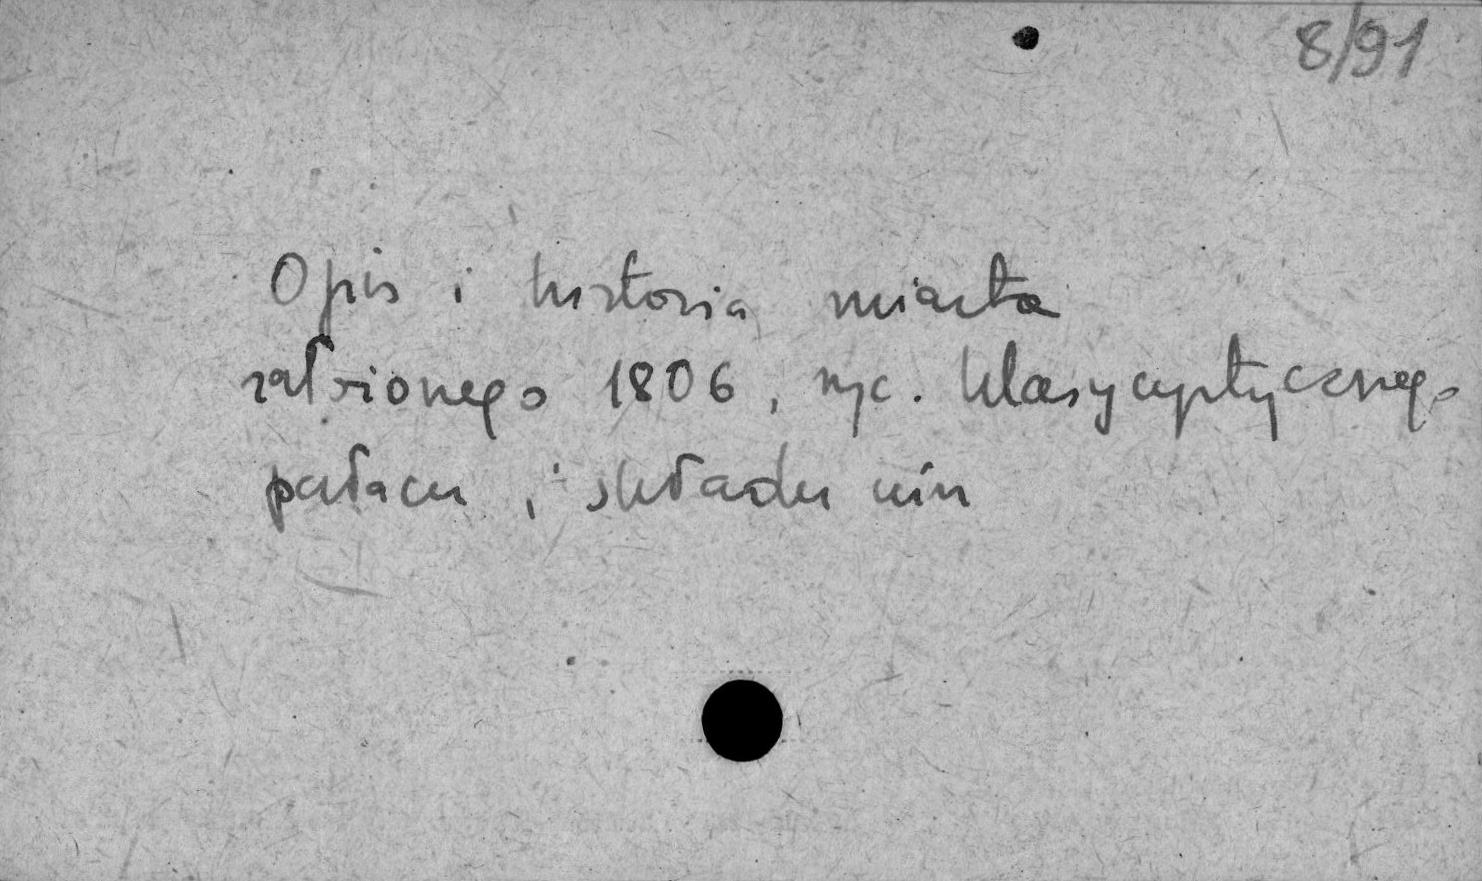 8/91
Opis i historia miasta
założonego 1806, ryc. klasycystycznego
pałacu i składu win